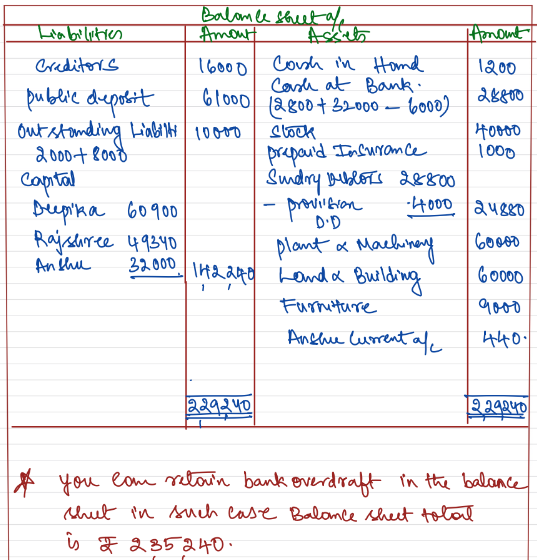 Balance sheet a/c
Liabilities Amount Assets Amount
Creditors 16000 Cash in Hand 1200
public deposit 61000 Cash at Bank. 28800
(2800 + 32000 - 6000)
Outstanding Liabiliti 10000 Stock 40000
2000 + 8000 prepaid Insurance 1000
Capital Sundry Debtors 28800
Deepika 60900 - provision 4000 24880
D.D
Rajshree 49340 plant & Machinery 60000
Anshu 32000 142240 Land & Building 60000
Furniture 9000
Anshu Current a/c 440.
229240 229240
* you can retain bank overdraft in the balance
sheet in such case Balance sheet total
is ₹ 235240.